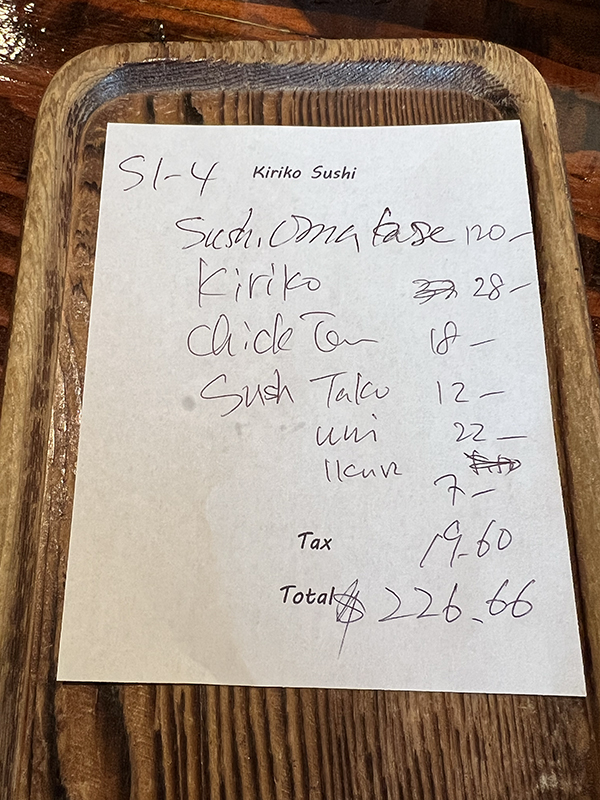 S1-4 Kiriko Sushi
Sushi Omakase 120-
Kiriko 28-
Chick 18-
Sush Tako 12-
uni 22-
7-
Tax 19.60
Total $ 226.66